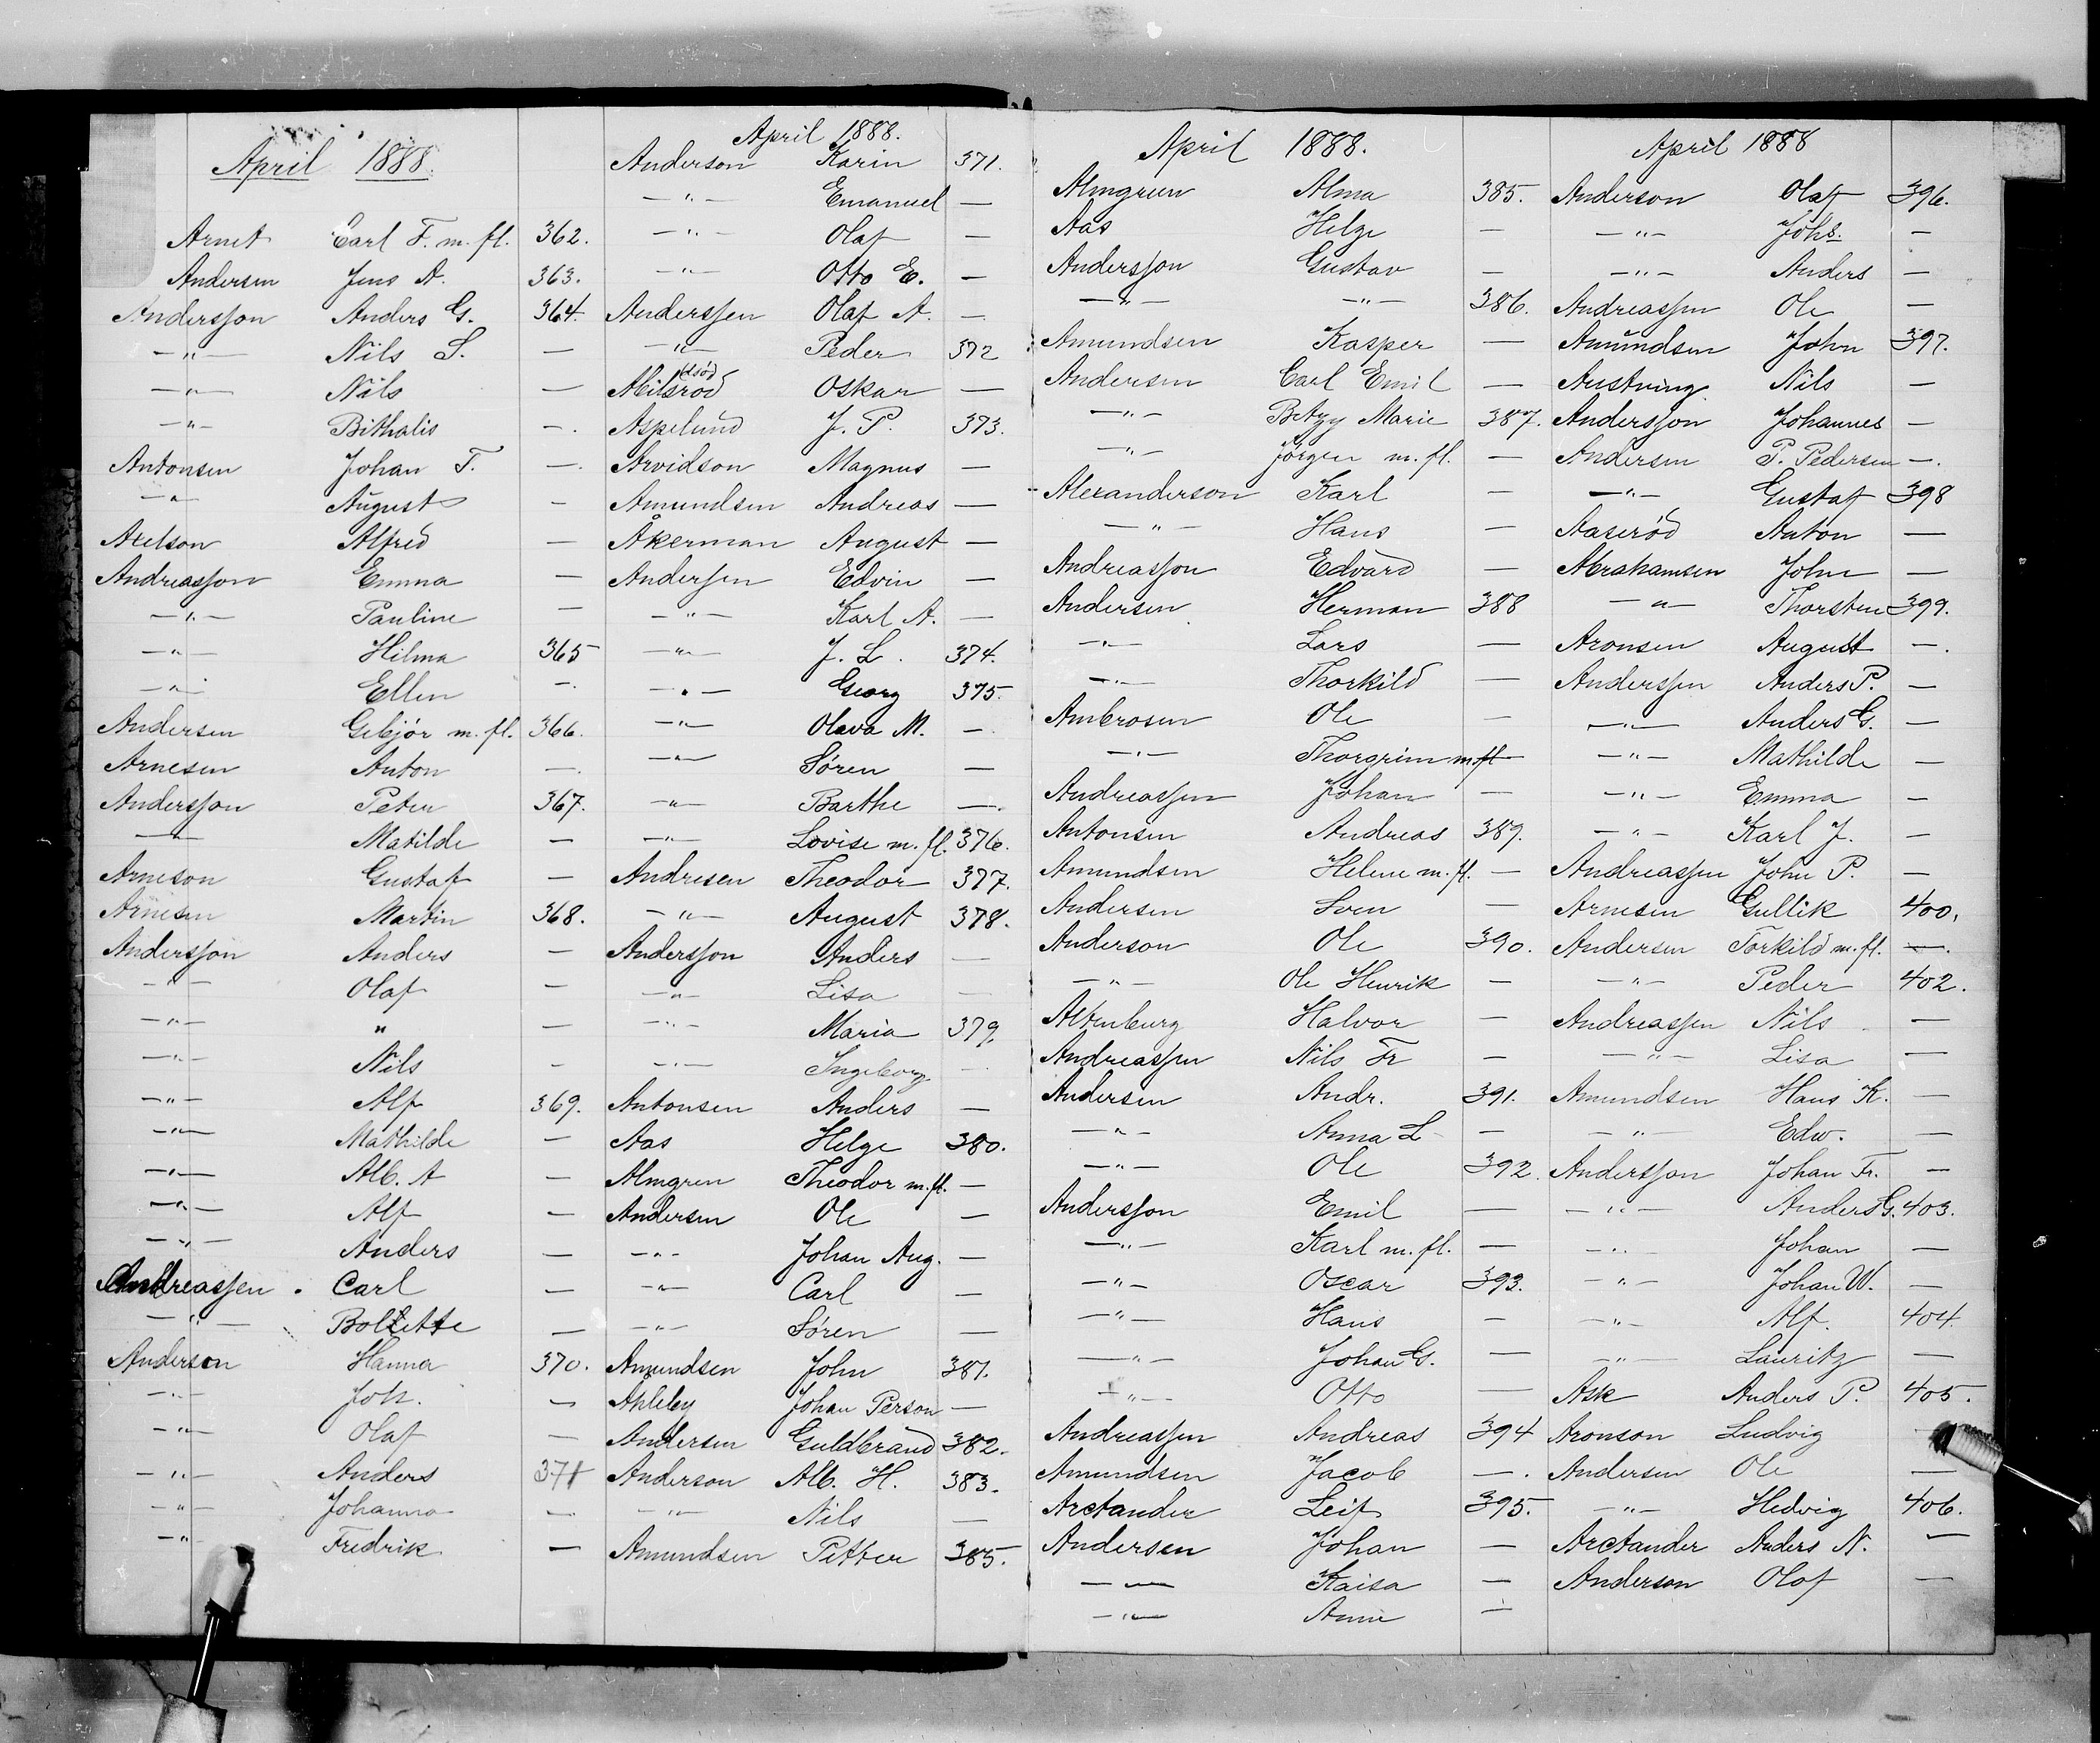 April 1888.
Arnet Carl F. m. fl. 362.
Andersen Jens A. 363.
Andersson Anders G. 364.
—"— Nils S. —
—"— Nils —
—"— Bithalis —.
Antonsen Johan T. —.
—"— August —
Axelson Alfred —
Andreasson Emma —
—"— Pauline —
—"— Hilma 365
—"— Ellen —.
Andersen Gebjør m. fl. 366.
Arnesen Anton —.
Andersson Peter 367.
—"— Matilde —
Arneson Gustaf —
Arnesen Martin 368.
Andersson Anders —
—"— Olaf —
—"— " —
—"— Nils —
—"— Alf 369.
—"— Mathilde —
—"— Alb. A —
—"— Alf —
—"— Anders —
Andreassen. Carl —
—"— Bolette —
Anderson Hanna 370.
—"— Joh. —
—"— Olaf —
—"— Anders 371
—"— Johanna —
—"— Fredrik —
April 1888.
Anderson Karin 371.
—"— Emanuel —
—"— Olaf —
—"— Otto E. —
Anderssen Olaf A. —
—"— Peder 372
Oskar —
Aspelund J. P. 373.
Arvidson Magnus —
Amundsen Andreas —
Åkerman August —
Andersen Edvin —
—"— Karl A. —
—"— J. L. 374.
—"— Georg 375.
—"— Olava M. —
—"— Søren —
—"— Barthe —.
—"— Lovise m. fl. 376.
Andresen Theodor 377.
—"— August 378.
Andersson Anders —
—"— Lisa —
—"— Maria 379.
—"— Ingeborg —
Antonsen Anders —
Aas Helge 380.
Almgren Theodor m. fl. —
Andersen Ole —
—"— Johan Aug. —
—"— Carl —
—"— Søren —
Amundsen John 381.
Ahleby Johan Person —
Andersen Guldbrand 382.
Anderson Alb. H. 383.
—"— Nils —
Amundsen Petter 385.
April 1888.
Almgren Alma 385.
Aas Helge —
Andersson Gustav —
—"— —"— 386.
Amundsen Kasper —
Andersen Carl Emil —
—"— Betzy Marie 387.
—"— Jørgen m. fl. —
Alexanderson Karl —
—"— Hans —
Andreasson Edvard —
Andersen Herman 388
—"— Lars —
—"— Thorkild —
Ambrosen Ole —
—"— Thorgrim m. fl —
Andreassen Johan —
Antonsen Andreas 389.
Amundsen Helene m. fl. —
Andersen Sven —
Anderson Ole 390.
—"— Ole Henrik —
Altenburg Halvor —
Andreassen Nils Fr —
Andersen Andr. 391.
—"— Anna L —
—"— Ole 392.
Andersson Emil —
—"— Karl m. fl. —
—"— Oscar 393.
—"— Hans —
—"— Johan G. —
—"— Otto —
Andreassen Andreas 394
Amundsen Jacob —.
Arctander Leif 395.
Andersen Johan —
—"— Kaisa —
—"— Anne —
April 1888
Anderson Olaf 396.
—"— Johs. —
—"— Anders —
Andreassen Ole —
Amundsen John 397.
Austning Nils —
Andersson Johannes —
Andersen P. Pedersen —.
—"— Gustaf 398
Aaserød Anton —
Abrahamsen John —
—"— Thorsten 399.
Aronsen August —.
Anderssen Anders P. —
—"— Anders G. —
—"— Mathilde —
—"— Emma —
—"— Karl J. —
Andreassen John P. —
Arnesen Gullik 400.
Andersen Torkild m. fl. —.
—"— Peder 402.
Andreassen Nils —
—"— Lisa —
Amundsen Hans K. —
—"— Edw. —
Andersson Johan Fr. —
—"— Anders G. 403.
—"— Johan —
—"— Johan W. —
—"— Alf. 404.
—"— Lauritz —
Ask Anders P. 405.
Aronson Ludvig —
Andersen Ole —
—"— Hedvig 406.
Arctander Anders N. —
Anderson Olof —